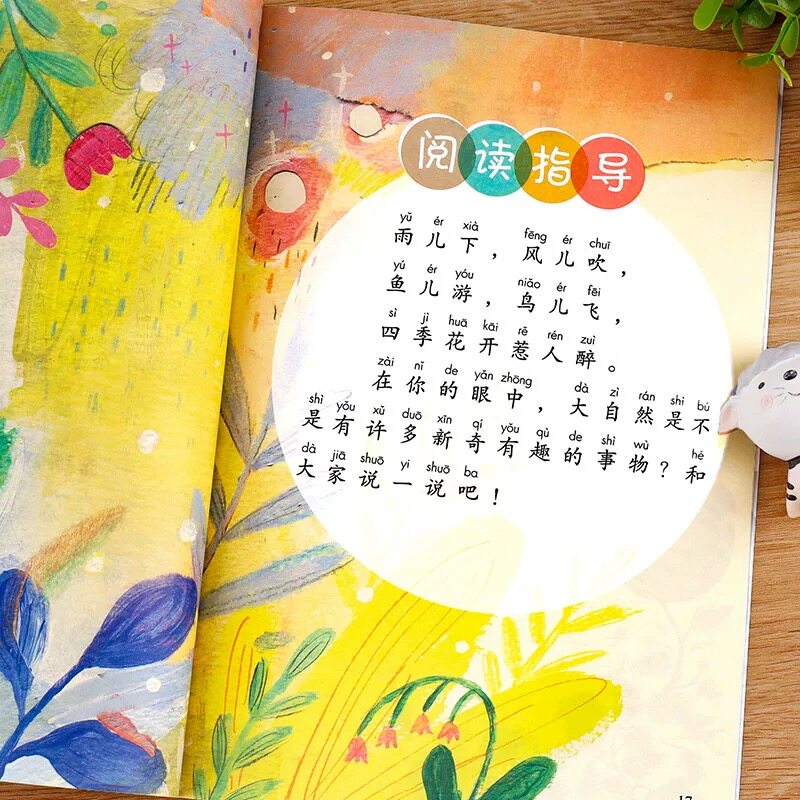 阅读指导
yǔ ér xià fēng ér chuī
雨儿下，风儿吹，
yú ér yóu niǎo ér fēi
鱼儿游，鸟儿飞，
sì jì huā kāi rě rén zuì
四季花开惹人醉。
zài nǐ de yǎn zhōng dà zì rán shì bú
在你的眼中，大自然是不
shì yǒu xǔ duō xīn qí yǒu qù de shì wù hé
是有许多新奇有趣的事物？和
dà jiā shuō yi shuō ba
大家说一说吧！
17